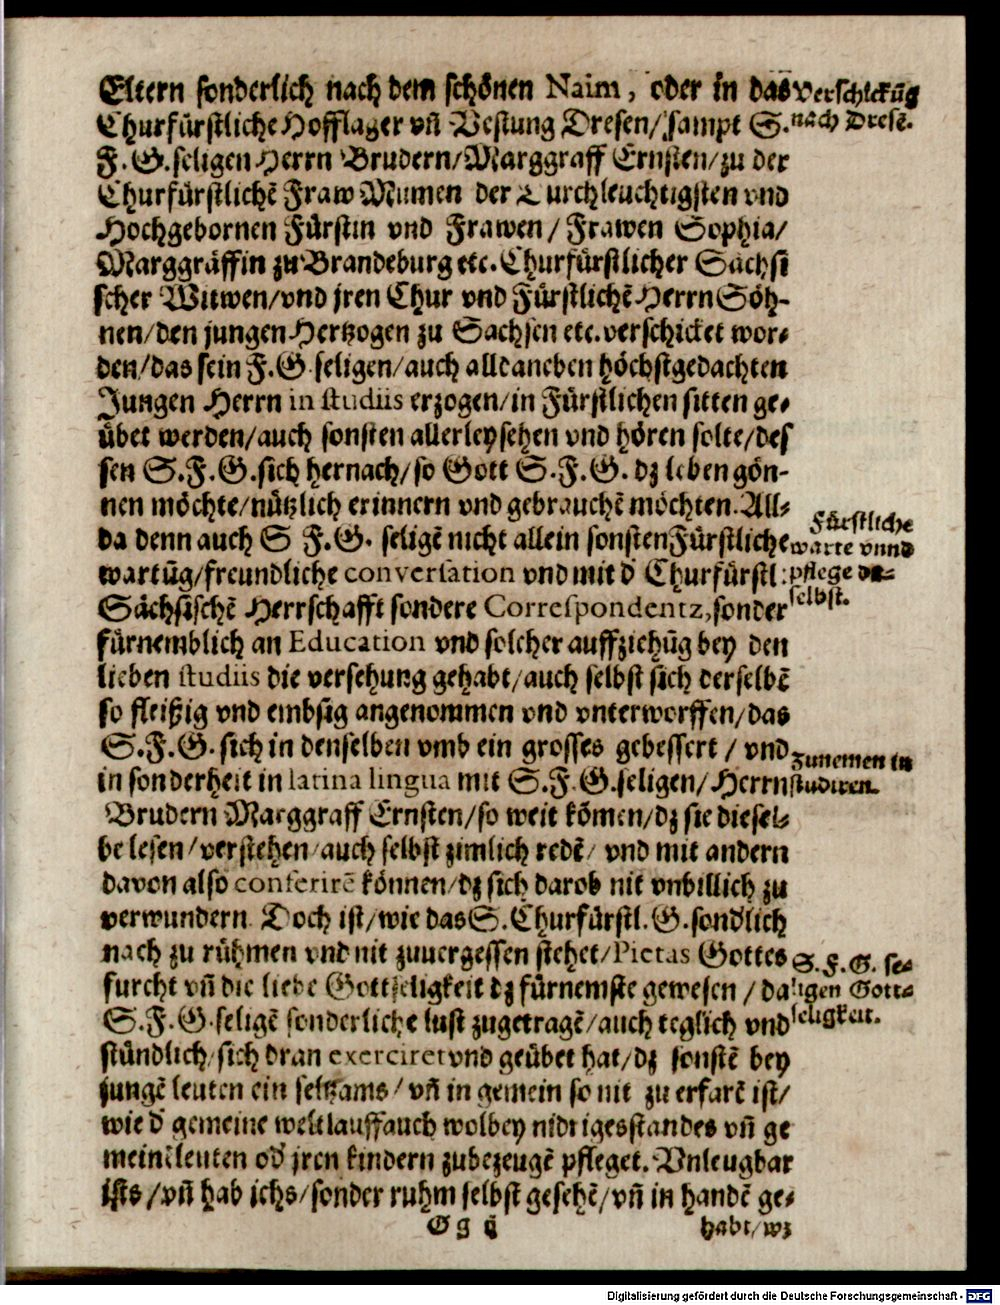 Eltern sonderlich nach dem schönen Naim, oder in das
Verschickũg
Churfürstliche Hofflager vñ Vestung Dresen/ sampt S.
nach Dresẽ.
F. G. seligen Herrn Brudern/ Marggraff Ernsten/ zu der
Churfürstlichẽ Fraw Mumen der Durchleuchtigsten vnd
Hochgebornen Fürstin vnd Frawen/ Frawen Sophia/
Marggräffin zu Brandeburg etc. Churfürstlicher Sächsi
scher Witwen/ vnd jren Chur vnd Fürstlichẽ Herrn Söh-
nen/ den jungen Hertzogen zu Sachsen etc. verschicket wor-
den/ das sein F. G. seligen/ auch alldaneben höchstgedachten
Jungen Herrn in studiis erzogen/ in Fürstlichen sitten ge-
übet werden/ auch sonsten allerley sehen vnd hören solte/ des
sen S. F. G. sich hernach/ so Gott S. F. G. dz leben gön-
nen möchte/ nützlich erinnern vnd gebrauchẽ möchten. All-
Fürstliche
da denn auch S F. G. seligẽ nicht allein sonsten Fürstliche
warte vnnd
wartũg/ freundliche conversation vnd mit d' Churfürstl:
pflege da-
Sächsischẽ Herrschafft sondere Correspondentz, sonder
selbst.
fürnemblich an Education vnd solcher auffziehũg bey den
lieben studiis die versehung gehabt/ auch selbst sich derselbẽ
so fleißig vnd embsig angenommen vnd vnterworffen/ das
S. F. G. sich in denselben vmb ein grosses gebessert / vnd
Zunemen in
in sonderheit in latina lingua mit S. F. G. seligen/ Herrn
studiren.
Brudern Marggraff Ernsten/ so weit kõmen/ dz sie diesel-
be lesen/ verstehen/ auch selbst zimlich redẽ/ vnd mit andern
davon also conferirẽ können/ dz sich darob nit vnbillich zu
verwundern. Doch ist/ wie das S. Churfürstl. G. sond'lich
nach zu rühmen vnd nit zuuergessen stehet/ Pietas Gottes
S. F. G. se-
furcht vñ die liebe Gottseligkeit dz fürnemste gewesen / da
ligen Gott-
S. F. G. seligẽ sonderliche lust zugetragẽ/ auch teglich vnd
seligkeit.
stündlich/ sich dran exerciret vnd geübet hat/ dz sonstẽ bey
jungẽ leuten ein seltzams/ vñ in gemein so nit zu erfarẽ ist/
wie d' gemeine weltlauff auch wol bey nidrigesstandes vñ ge
meinẽ leuten od' jren kindern zubezeugẽ pfleget. Vnleugbar
ists/ vñ hab ichs/ sonder ruhm selbst gesehẽ/ vñ in handẽ ge-
G g ij
habt/ wz
Digitalisierung gefördert durch die Deutsche Forschungsgemeinschaft - DFG